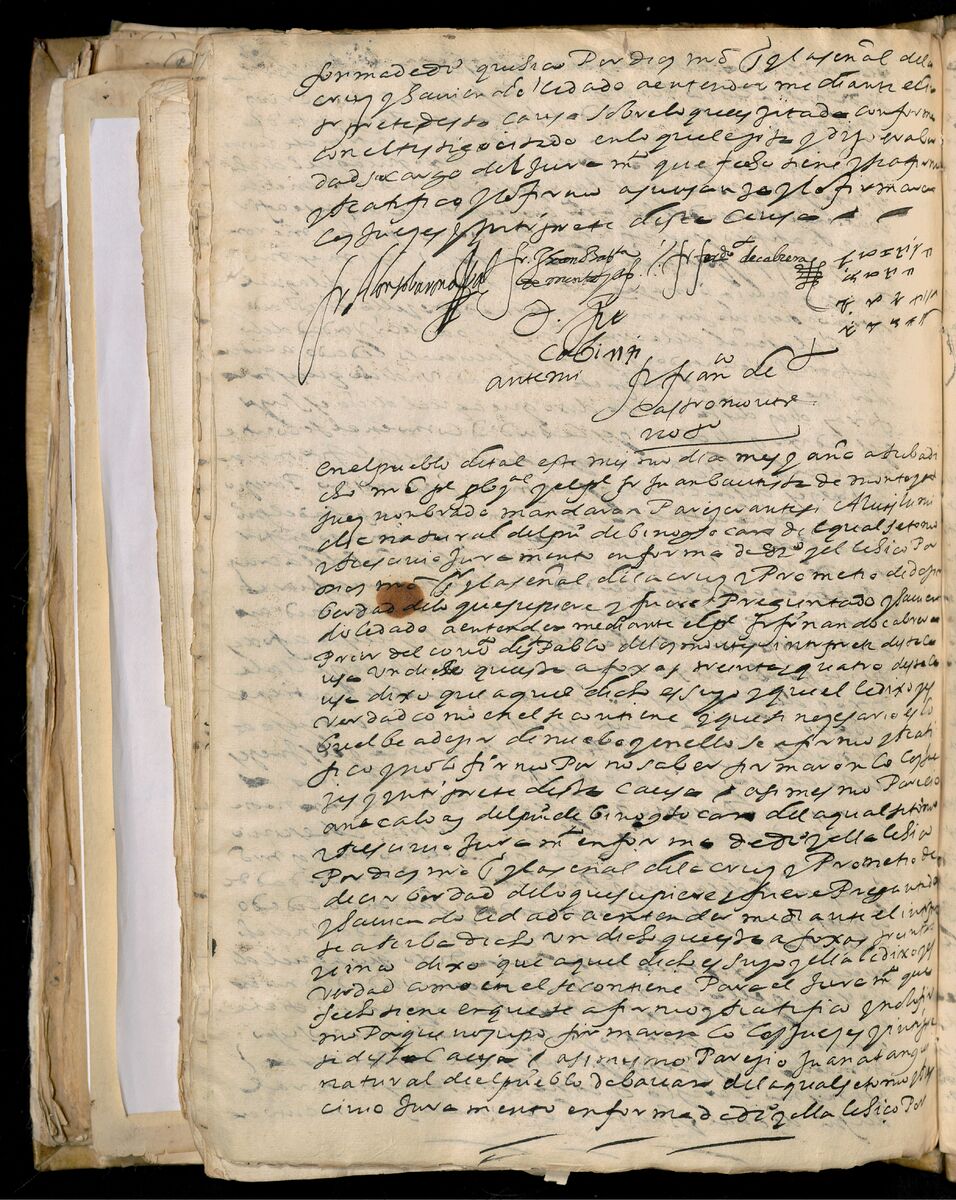 forma de dro que hico Por dios nro Sr y la señal de la
cruz y haviendole dado a entender mediante el in
terprete desta causa sobre lo que es sitado conforma
con el testigo citado en lo que le sita y dijo verdad
dad so cargo del Juramto que fecho tiene y se afirmo
y Ratifico y lo firmo a su usanza y lo firmaron
los Jueses y interprete desta Causa
fr Alonso fr Juan Bapta de montoya fr ferdo de cabrera
D. fhe
cabinti
ante mi fr franco de
castromonte
noto
en el pueblo de tal este mismo dia mes y año a Riba di
cho nro pe y el pe fr Juan bautista de montoya
juez nonbrado mandaron Pareser ante si
natural del puo de binogtocan del qual se tomo
y Rescivio Juramento en forma de dro y el le hico Por
dios nro Sr y la señal de la cruz y Prometio de desir
berdad de lo que supiere y fuere Preguntado y havien
dole dado a entender mediante el pe fr fernando cabrera
Prior del convto de St Pablo de los montes interprete desta ca
usa Un dicho que esta a foxas treinta y quatro desta ca
usa dixo que aquel dicho es suyo y que el le dixo y es
verdad como en el se contiene y que si nesesario es lo
buelbe a desir de nuebo y en ello se afirmo y Rati
fico y no lo firmo Por no saber firmaronlo los Jue
ses y interprete desta Causa asimesmo Parecio
ana calo del puo de binogtocan del a qual se tomo
y Rescivio Juramto en forma de dro y ella le hico
Por dios nro Sr y la señal de la cruz y Prometio de
decir berdad de lo que supiere y fuere Preguntada
y haviendole dado a entender mediante el interp
te a Riba dicho Un dicho que esta a foxas treinta
y cinco dixo que aquel dicho es suyo y ella le dixo y es
verdad como en el se contiene Para el Juramto que
fecho tiene en que se afirmo y Ratifico y no lo fir
mo Porque no supo firmaronlo los Jueses y interpe
te desta Causa asimesmo Paresio Juana
natural de el pueblo de del a qual se tomo y Re
civio Juramento en forma de dro y ella le hico Por